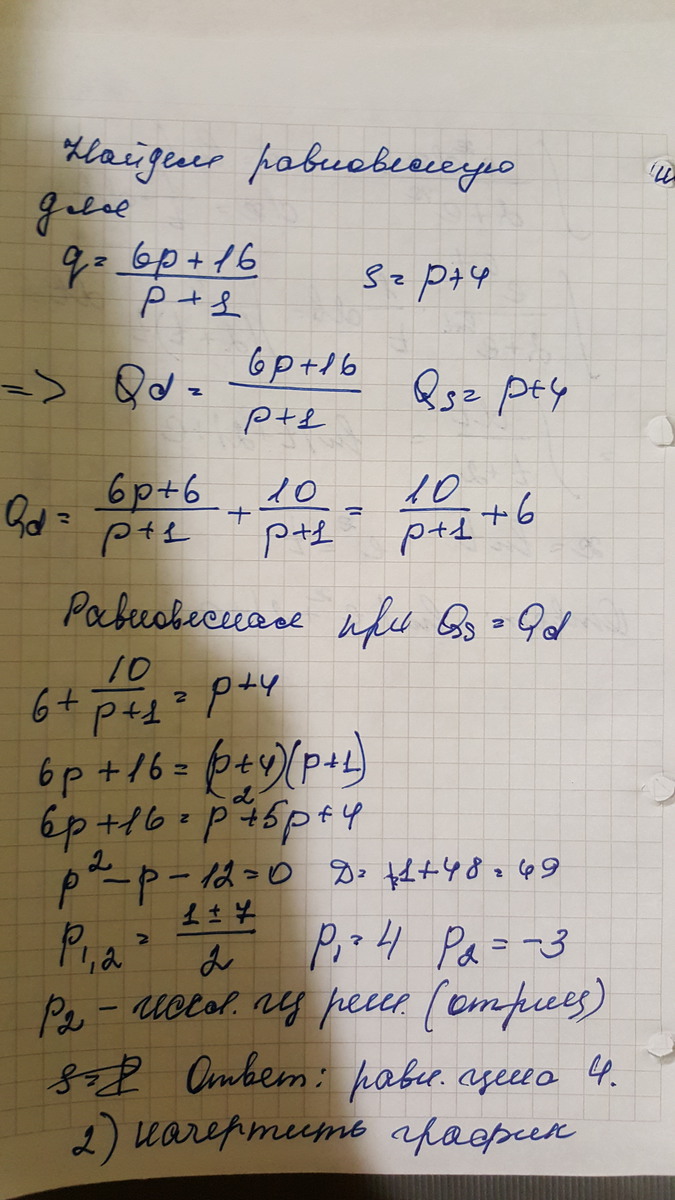 Найдем равновесную
для
q = (6p+16)/(p+1) s = p+4
=> Qd = (6p+16)/(p+1) Qs = p+4
Qd = (6p+6)/(p+1) + 10/(p+1) = 10/(p+1) + 6
Равновесная при Qs = Qd
6 + 10/(p+1) = p+4
6p + 16 = (p+4)(p+1)
6p + 16 = p² + 5p + 4
p² - p - 12 = 0 D = 1 + 48 = 49
p₁,₂ = (1 ± 7)/2 p₁ = 4 p₂ = -3
p₂ - искл. из реш. (отриц)
Ответ: равн. цена 4.
2) начертить график